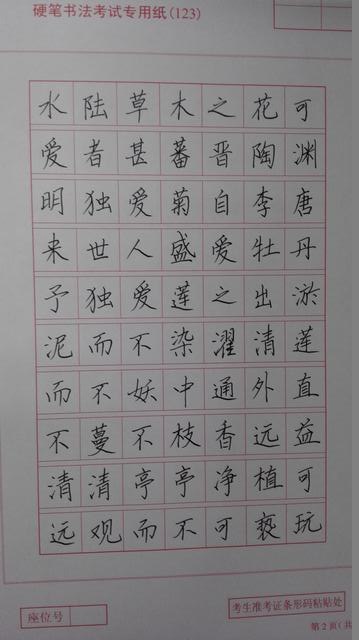 硬笔书法考试专用纸(123)
水陆草木之花可
爱者甚蕃晋陶渊
明独爱菊自李唐
来世人盛爱牡丹
予独爱莲之出淤
泥而不染濯清莲
而不妖中通外直
不蔓不枝香远益
清清亭亭净植可
远观而不可亵玩
座位号
考生准考证条形码粘贴处
第2页(共